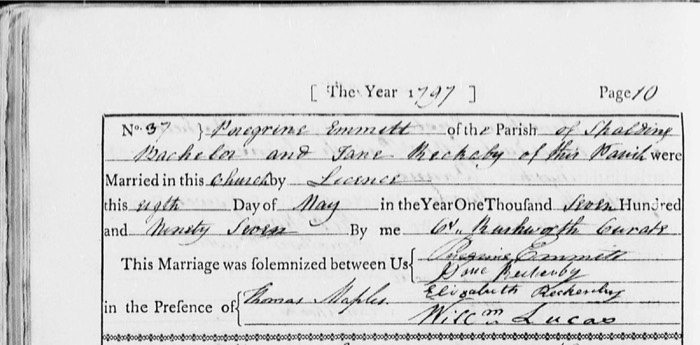 [ The Year 1797 ] Page 10
No. 37 } Peregrine Emmett of the Parish of Spalding
Bachelor and Jane of this Parish were
Married in this Church by Licence
this eigth Day of May in the Year One Thouſand Seven Hundred
and Ninety Seven By me Rushworth Curate
This Marriage was ſolemnized between Us { Peregrine Emmett
Jane
in the Preſence of { Thomas Maples. Elizabeth
Willm Lucas